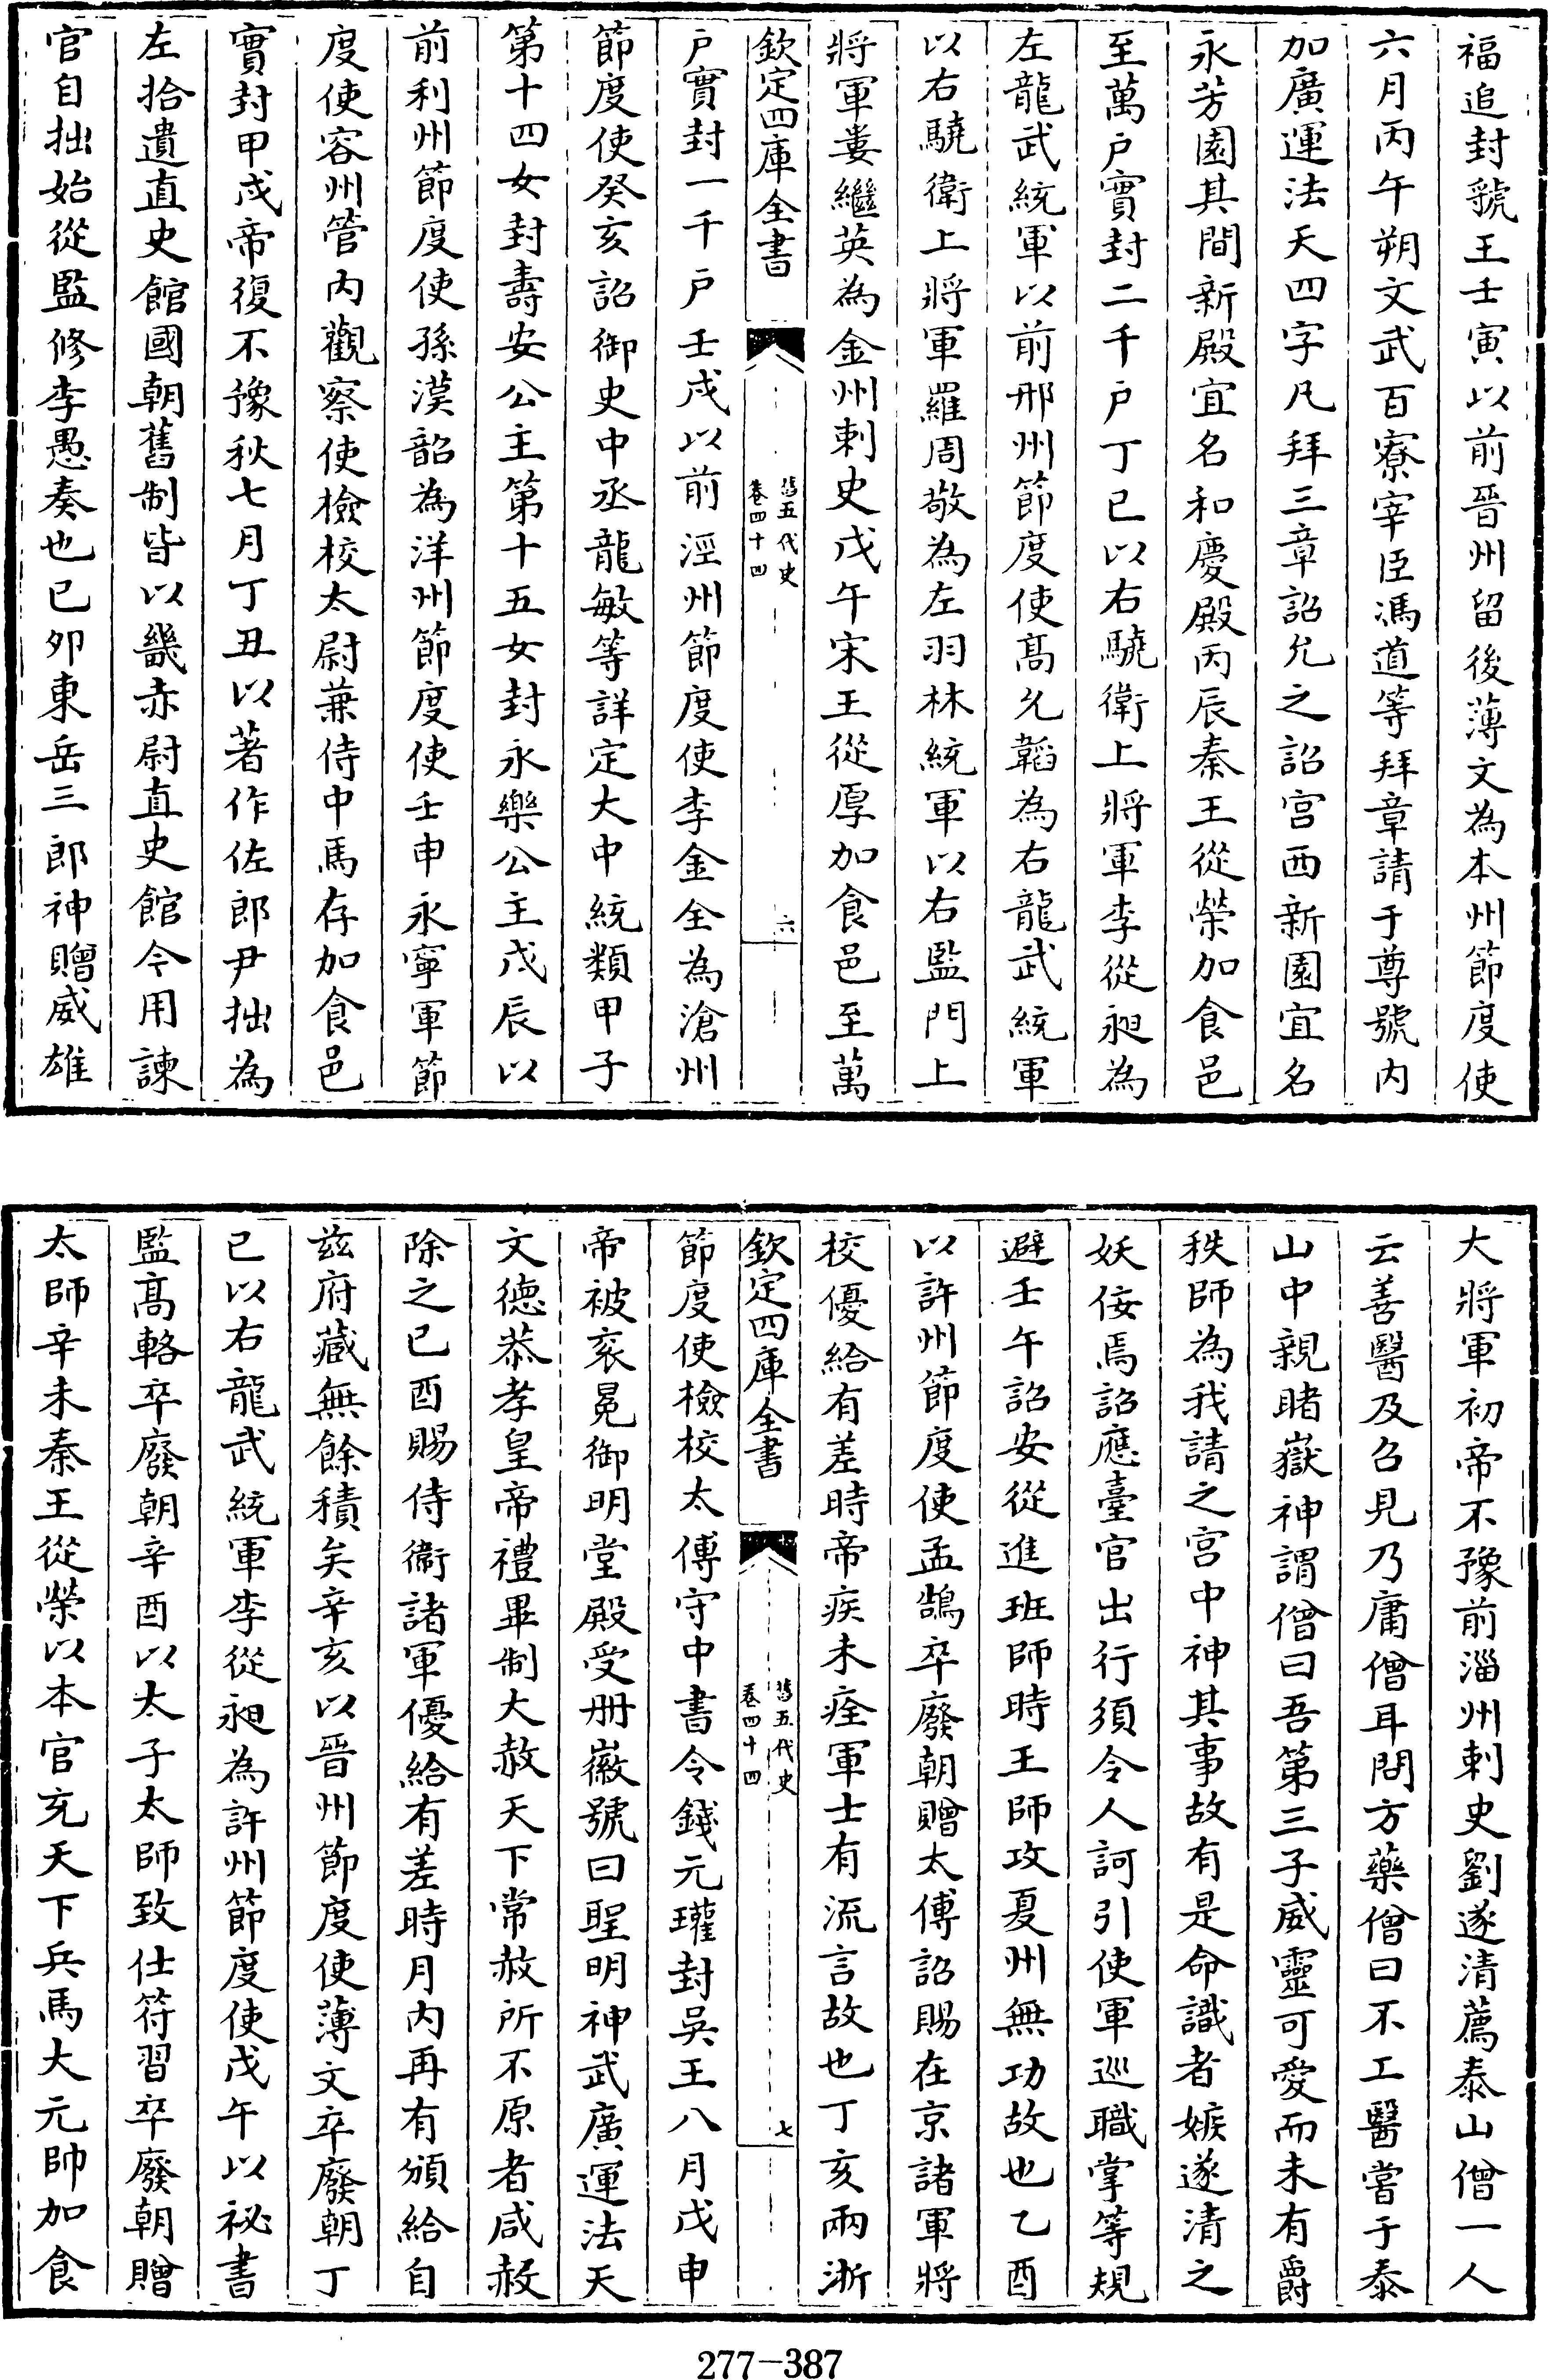 福追封虢王壬寅以前晉州留後薄文為本州節度使
六月丙午朔文武百寮宰臣馮道等拜章請于尊號内
加廣運法天四字凡拜三章詔允之詔宫西新園宜名
永芳園其間新殿宜名和慶殿丙辰秦王從榮加食邑
至萬戸實封二千戸丁巳以右驍衛上將軍李從昶為
左龍武統軍以前邢州節度使髙允韜為右龍武統軍
以右驍衛上將軍羅周敬為左羽林統軍以右監門上
將軍婁繼英為金州刺史戊午宋王從厚加食邑至萬
欽定四庫全書
舊五代史
卷四十四
六
戸實封一千戸壬戌以前涇州節度使李金全為滄州
節度使癸亥詔御史中丞龍敏等詳定大中統類甲子
第十四女封壽安公主第十五女封永樂公主戊辰以
前利州節度使孫漢韶為洋州節度使壬申永寧軍節
度使容州管内觀察使檢校太尉兼侍中馬存加食邑
實封甲戌帝復不豫秋七月丁丑以著作佐郎尹拙為
左拾遺直史館國朝舊制皆以畿赤尉直史館今用諫
官自拙始從監修李愚奏也己夘東岳三郎神贈威雄
大將軍初帝不豫前淄州刺史劉遂清薦泰山僧一人
云善醫及召見乃庸僧耳問方藥僧曰不工醫嘗于泰
山中親睹嶽神謂僧曰吾第三子威靈可愛而未有爵
秩師為我請之宫中神其事故有是命識者嫉遂清之
妖佞焉詔應臺官出行須令人訶引使軍巡職掌等規
避壬午詔安從進班師時王師攻夏州無功故也乙酉
以許州節度使孟鵠卒廢朝贈太傅詔賜在京諸軍將
校優給有差時帝疾未痊軍士有流言故也丁亥兩浙
欽定四庫全書
舊五代史
卷四十四
七
節度使檢校太傅守中書令錢元瓘封吳王八月戊申
帝被衮冕御明堂殿受册徽號曰聖明神武廣運法天
文德恭孝皇帝禮畢制大赦天下常赦所不原者咸赦
除之己酉賜侍衞諸軍優給有差時月内再有頒給自
兹府藏無餘積矣辛亥以晉州節度使薄文卒廢朝丁
巳以右龍武統軍李從昶為許州節度使戊午以祕書
監髙輅卒廢朝辛酉以太子太師致仕符習卒廢朝贈
太師辛未秦王從榮以本官充天下兵馬大元帥加食
277-387